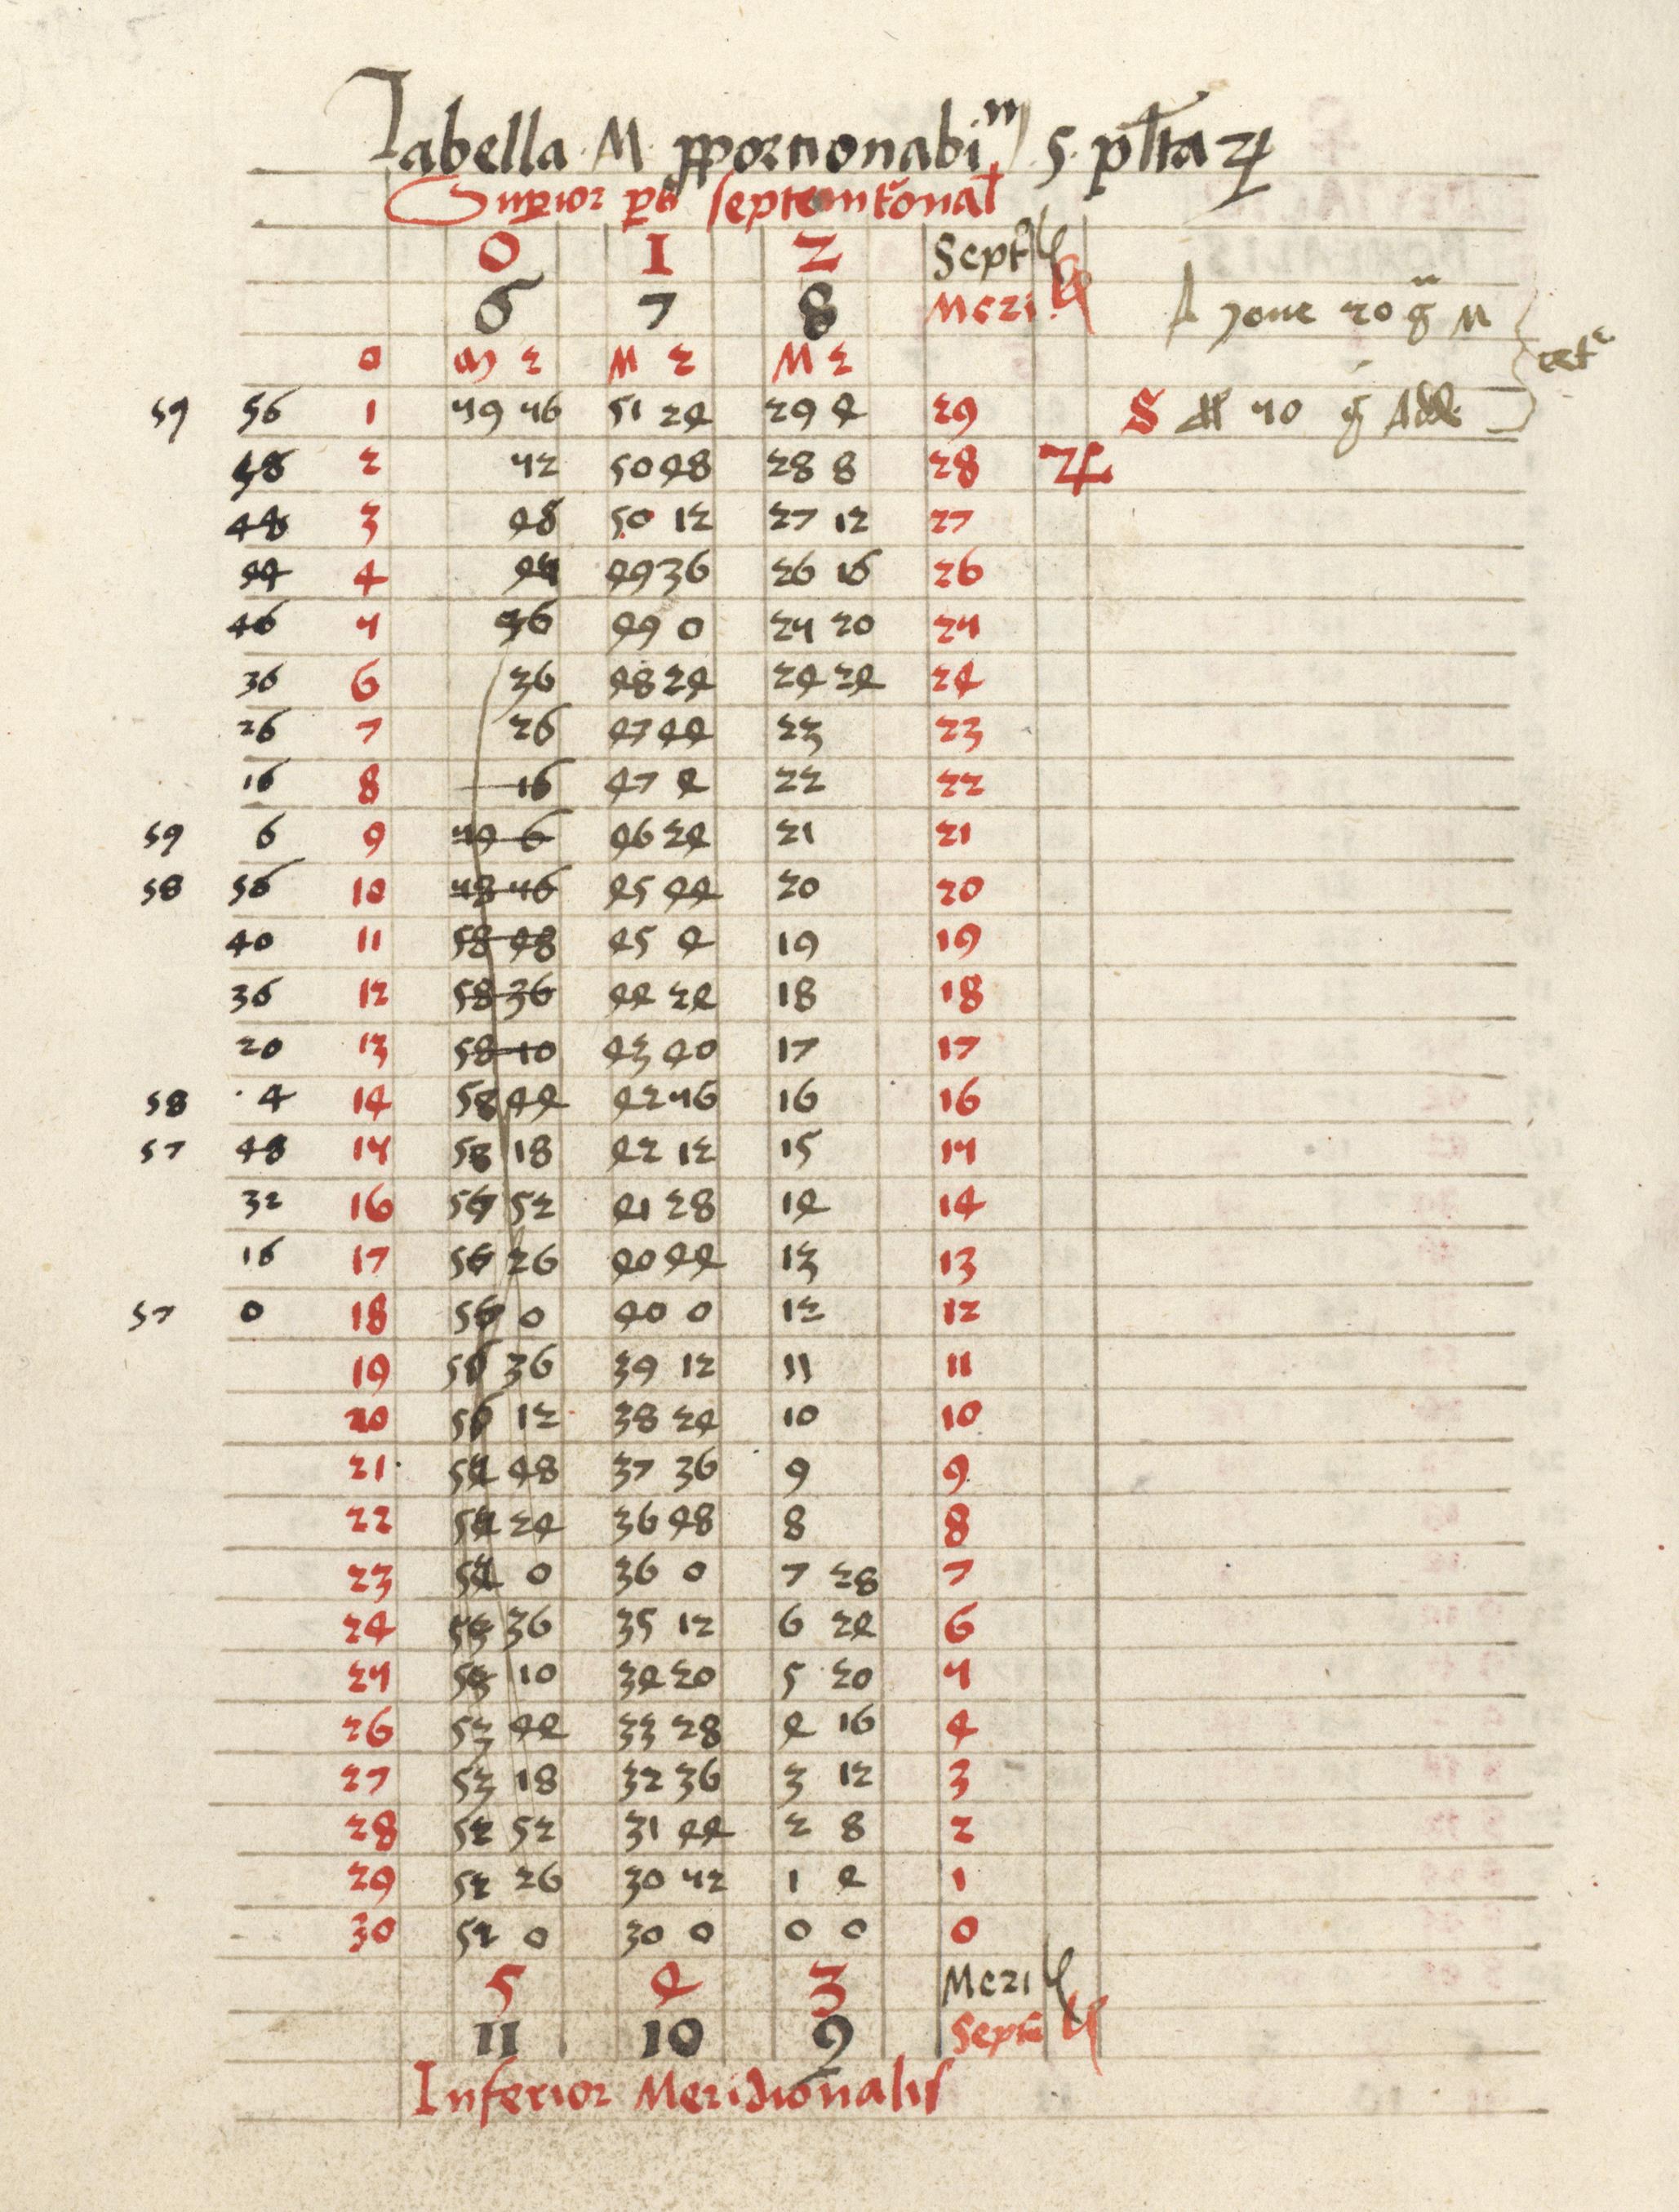 Tabella M pportionabim S plta ♃
Superior ps septemtronal
0 1 2 Sept
6 7 8 Meri
A Joue 20 g M
0 M 2 M 2 M 2
59 56 1 59 56 51 24 29 4 29 S 50 g Adde
58 2 52 50 48 28 8 28 ♃
48 3 48 50 12 27 12 27
44 4 49 36 26 16 26
46 5 49 0 25 20 25
36 6 36 48 24 24 24 24
26 7 26 47 44 23 23
16 8 16 47 4 22 22
59 6 9 59 6 46 24 21 21
58 56 10 58 56 45 44 20 20
40 11 58 48 45 4 19 19
36 12 58 36 44 24 18 18
20 13 58 10 43 40 17 17
58 4 14 58 44 42 56 16 16
57 48 15 58 18 42 12 15 15
32 16 52 41 28 14 14
16 17 26 40 44 13 13
57 0 18 0 40 0 12 12
19 56 36 39 12 11 11
20 56 12 38 24 10 10
21 48 37 36 9 9
22 24 36 48 8 8
23 0 36 0 7 28 7
24 36 35 12 6 24 6
25 53 10 34 20 5 20 5
26 53 44 33 28 4 16 4
27 53 18 32 36 3 12 3
28 52 52 31 44 2 8 2
29 52 26 30 52 1 4 1
30 52 0 30 0 0 0 0
5 4 3 Meri
11 10 9 Septm
Inferior Meridionalis